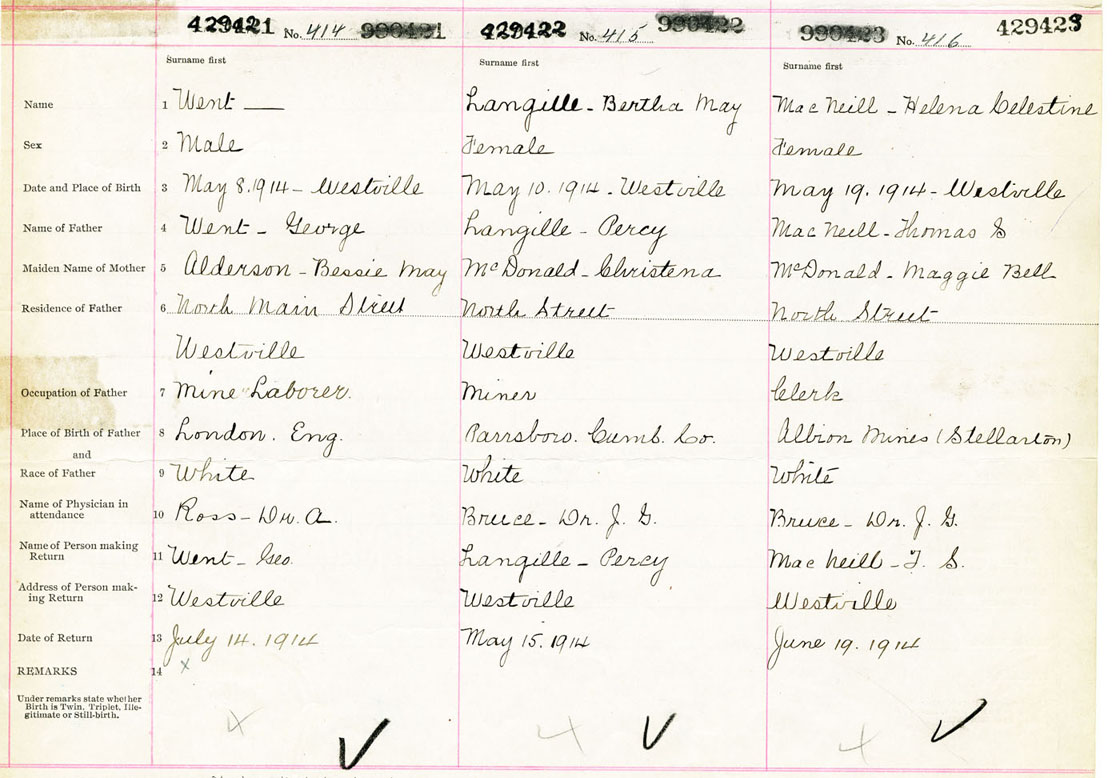 429421 No. 414 990421 429422 No. 415 990422 990423 No. 416 429423
Surname first Surname first Surname first
Name 1 Went — Langille - Bertha May Mac Neill - Helena Celestine
Sex 2 Male Female Female
Date and Place of Birth 3 May 8. 1914 - Westville May 10. 1914 - Westville May 19. 1914 - Westville
Name of Father 4 Went - George Langille - Percy Mac Neill - Thomas S
Maiden Name of Mother 5 Alderson - Bessie May McDonald - Christena McDonald - Maggie Bell
Residence of Father 6 North Main Street North Street North Street
Westville Westville Westville
Occupation of Father 7 Mine Laborer. Miner Clerk
Place of Birth of Father 8 London. Eng. Parrsboro. Cumb. Co. Albion Mines (Stellarton)
and
Race of Father 9 White White White
Name of Physician in
attendance 10 Ross - Dr. A. Bruce - Dr. J. G. Bruce - Dr. J. G.
Name of Person making
Return 11 Went - Geo. Langille - Percy Mac Neill - T. S.
Address of Person mak-
ing Return 12 Westville Westville Westville
Date of Return 13 July 14. 1914 May 15. 1914 June 19. 1914
REMARKS 14 x
Under remarks state whether
Birth is Twin, Triplet, Ille-
gitimate or Still-birth.